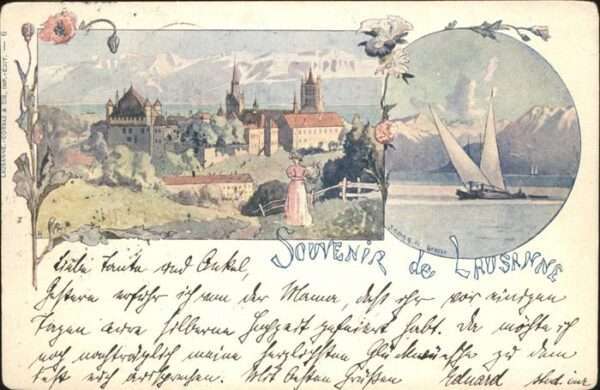 LAUSANNE. — CORBAZ & Cie, IMP.-ÉDIT. — 6
SOUVENIR de LAUSANNE
Liebe Tante und Onkel,
Gestern erfuhr ich von der Mama, daß ihr vor einigen
Tagen eure silberne Hochzeit gefeiert habt. Da möchte ich
noch nachträglich meine herzlichsten Glückwünsche zu dem
Fest euch aussprechen. Mit besten Grüßen Eduard